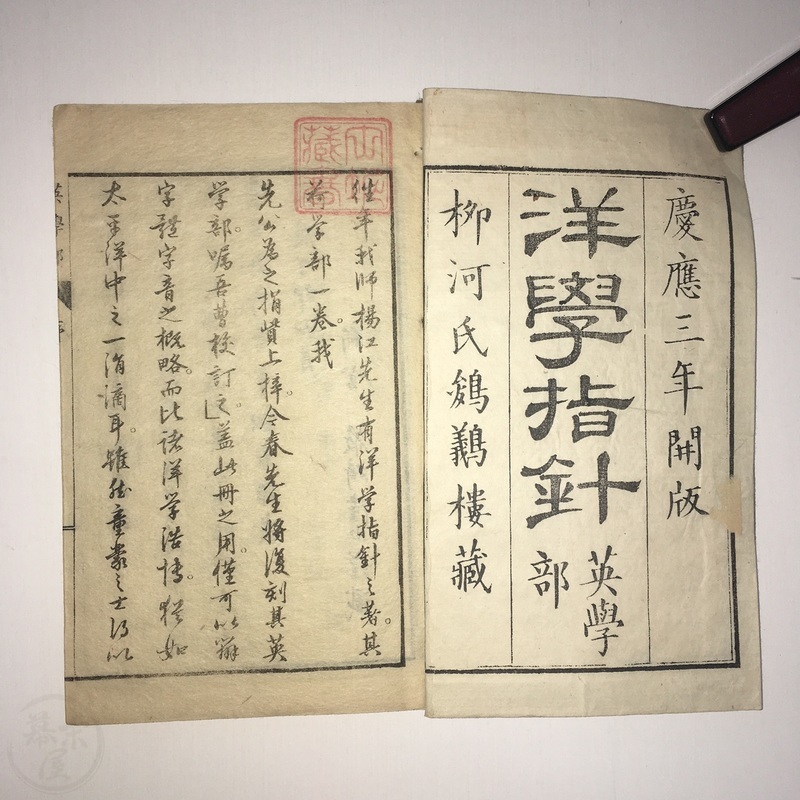 慶應三年開版
洋學指針
英學
部
柳河氏鵷鶵樓藏
往年我師楊江先生有洋学指針之著。其
荷学部一卷。我
先公為之捐貲上梓。今春先生將復刻其英
学部。嘱吾曹校訂之。蓋此册之用。僅可以辨
字體字音之概略。而比諸洋学浩博。猶如
太平洋中之一涓滴耳。雖然童蒙之士得以